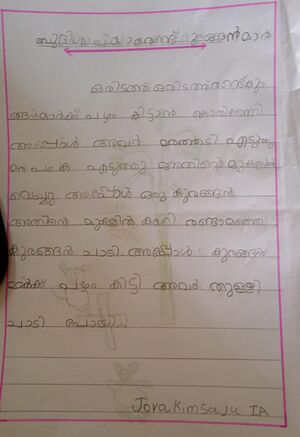 ബുദ്ധിശാലിയായ രണ്ട് കുരങ്ങൻമാർ
ഒരിടത്ത് ഒരിടത്ത് രണ്ട് കുര
ങ്ങൻമാർക്ക് പഴം കിട്ടാൻ കൊതിതോന്നി
അപ്പോൾ അവർ മരത്തടി എടുത്തു
ഒരു പലക എടുത്തു അതിന്റെ മുകളിൽ
വെച്ചു അപ്പോൾ ഒരു കുരങ്ങൻ
അതിന്റെ മുകളിൽ കയറി രണ്ടാമത്തെ
കുരങ്ങൻ ചാടി. അപ്പോൾ കുരങ്ങൻ
മാർക്ക് പഴം കിട്ടി അവർ തുള്ളി
ചാടി പോയി..
Jovakim Saju IA